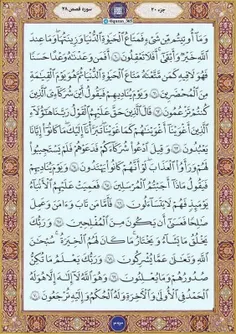 جزء ۲۰
سوره قصص ۲۸
وَمَا أُوتِيتُم مِّن شَيْءٍ فَمَتَاعُ الْحَيَوٰةِ الدُّنْيَا وَزِينَتُهَا وَمَا عِندَ
اللَّهِ خَيْرٌ وَأَبْقَىٰ أَفَلَا تَعْقِلُونَ ۝ أَفَمَن وَعَدْنَٰهُ وَعْدًا حَسَنًا
فَهُوَ لَٰقِيهِ كَمَن مَّتَّعْنَٰهُ مَتَٰعَ الْحَيَوٰةِ الدُّنْيَا ثُمَّ هُوَ يَوْمَ الْقِيَٰمَةِ
مِنَ الْمُحْضَرِينَ ۝ وَيَوْمَ يُنَادِيهِمْ فَيَقُولُ أَيْنَ شُرَكَاءِيَ الَّذِينَ
كُنتُمْ تَزْعُمُونَ ۝ قَالَ الَّذِينَ حَقَّ عَلَيْهِمُ الْقَوْلُ رَبَّنَا هَٰؤُلَاءِ
الَّذِينَ أَغْوَيْنَا أَغْوَيْنَٰهُمْ كَمَا غَوَيْنَا تَبَرَّأْنَا إِلَيْكَ مَا كَانُوا إِيَّانَا
يَعْبُدُونَ ۝ وَقِيلَ ادْعُوا شُرَكَاءَكُمْ فَدَعَوْهُمْ فَلَمْ يَسْتَجِيبُوا
لَهُمْ وَرَأَوُا الْعَذَابَ لَوْ أَنَّهُمْ كَانُوا يَهْتَدُونَ ۝ وَيَوْمَ يُنَادِيهِمْ
فَيَقُولُ مَاذَا أَجَبْتُمُ الْمُرْسَلِينَ ۝ فَعَمِيَتْ عَلَيْهِمُ الْأَنبَاءُ
يَوْمَئِذٍ فَهُمْ لَا يَتَسَاءَلُونَ ۝ فَأَمَّا مَن تَابَ وَءَامَنَ وَعَمِلَ
صَٰلِحًا فَعَسَىٰ أَن يَكُونَ مِنَ الْمُفْلِحِينَ ۝ وَرَبُّكَ
يَخْلُقُ مَا يَشَاءُ وَيَخْتَارُ مَا كَانَ لَهُمُ الْخِيَرَةُ سُبْحَٰنَ
اللَّهِ وَتَعَٰلَىٰ عَمَّا يُشْرِكُونَ ۝ وَرَبُّكَ يَعْلَمُ مَا تُكِنُّ
صُدُورُهُمْ وَمَا يُعْلِنُونَ ۝ وَهُوَ اللَّهُ لَا إِلَٰهَ إِلَّا هُوَ لَهُ
الْحَمْدُ فِي الْأُولَىٰ وَالْءَاخِرَةِ وَلَهُ الْحُكْمُ وَإِلَيْهِ تُرْجَعُونَ ۝